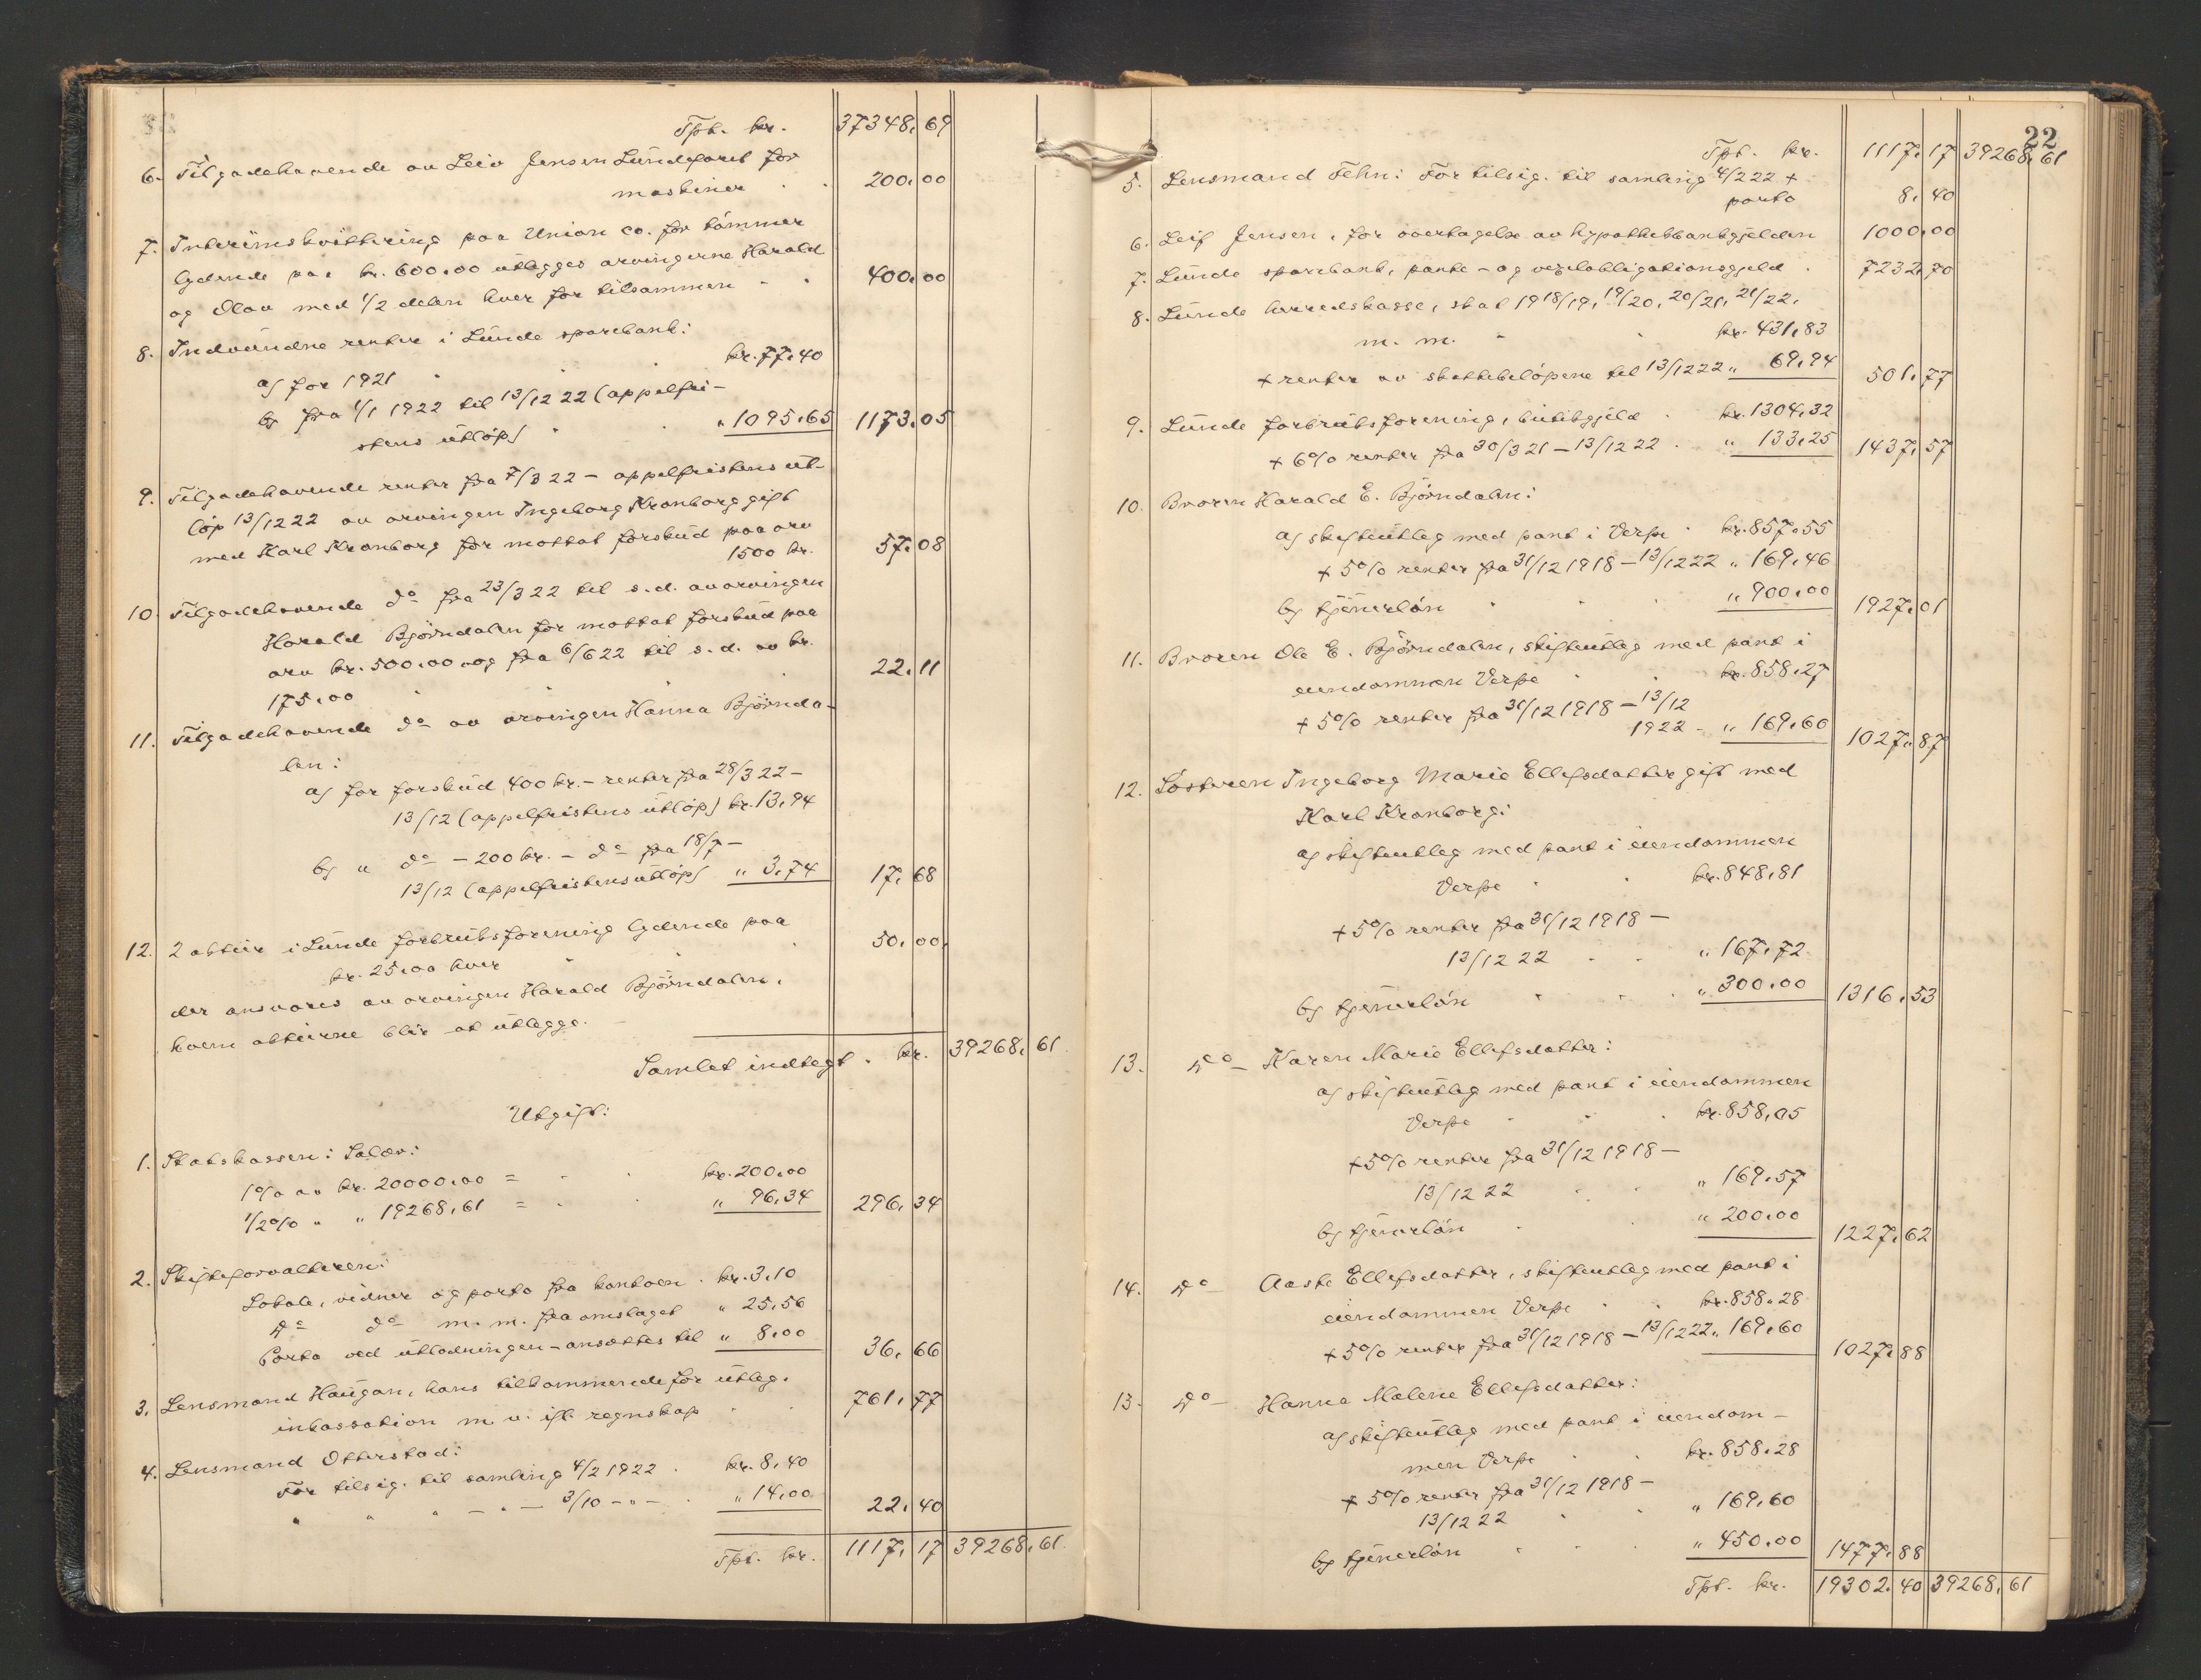 Tpt. kr. 37348,69
6. Tilgodehavende av Leiv Jensen Lundefaret for
maskiner . . 200,00
7. Interimskvittering paa Union Co. for tömmer
lydende paa kr. 600,00 utlægges arvingerne Harald
og Olav med 1/2 delen hver for tilsammen . . 400,00
8. Indvundne renter i Lunde sparebank:
a) for 1921 . . . kr. 77,40
b) fra 1/1 1922 til 13/12 22 (appelfri-
stens utlöp) . . „ 1095,65 1173,05
9. Tilgodehavende renter fra 7/3 22 – appelfristens ut-
löp 13/12 22 av arvingen Ingeborg Kronborg gift
med Karl Kronborg for mottat forskud paa arv
1500 kr. 57,08
10. Tilgodehavende do fra 23/3 22 til s.d. av arvingen
Harald Björndalen for mottat forskud paa
arv kr. 500,00 og fra 6/6 22 til s.d. av kr.
175,00 . . . 22,11
11. Tilgodehavende do av arvingen Hanna Björnda-
len:
a) for forskud 400 kr. – renter fra 28/3 22 –
13/12 (appelfristens utlöp) kr. 13,94
b) „ do – 200 kr. – do fra 18/7 –
13/12 (appelfristens utlöp) „ 3,74 17,68
12. 2 aktier i Lunde forbruksforening lydende paa
kr. 25,00 hver . . 50,00
der ansvares av arvingen Harald Björndalen,
hvem aktierne blir at utlegge.
Samlet indtegt . kr. 39268,61
Utgift:
1. Statskassen: Salær:
1% av kr. 20000,00 = . . kr. 200,00
1/2% „ „ 19268,61 = . „ 96,34 296,34
2. Skifteforvalteren:
Lokale, vidner og porto fra kontoen . kr. 3,10
Do do m. m. fra omslaget „ 25,56
Porto ved utlodningen – ansættes til „ 8,00 36,66
3. Lensmand Haugan, hans tilkommende for utlæg,
inkassation m. v. ifl. regnskap . . 761,77
4. Lensmand Otterstad:
For tilsig. til samling 4/2 1922 . kr. 8,40
„ „ „ – „ – 3/10 – „ – . „ 14,00 22,40
Tpt. kr. 1117,17 39268,61
22
Tpt. kr. 1117,17 39268,61
5. Lensmand Fehn: For tilsig. til samling 4/2 22 +
porto 8,40
6. Leif Jensen, for overtagelse av hypothekbankgjelden 1000,00
7. Lunde sparebank, pante- og vexelobligationsgjeld . 7232,70
8. Lunde herredskasse, skat 1918/19, 19/20, 20/21, 21/22,
m. m. . . kr. 431,83
+ renter av skattebelöpene til 13/12 22 „ 69,94 501,77
9. Lunde forbruksforening, butikgjeld . kr. 1304,32
+ 6% renter fra 30/3 21 – 13/12 22 . „ 133,25 1437,57
10. Broren Harald E. Björndalen:
a) skifteutlæg med pant i Verpe . kr. 857,55
+ 5% renter fra 31/12 1918 – 13/12 22 „ 169,46
b) tjenerlön . . . „ 900,00 1927,01
11. Broren Ole E. Björndalen, skifteutlæg med pant i
eiendommen Verpe . . kr. 858,27
+ 5% renter fra 31/12 1918 – 13/12
1922 – „ 169,60 1027,87
12. Søsteren Ingeborg Marie Ellefsdatter gift med
Karl Kronborg:
a) skifteutlæg med pant i eiendommen
Verpe . . kr. 848,81
+ 5% renter fra 31/12 1918 –
13/12 22 . . „ 167,72
b) tjenerlön . . . „ 300,00 1316,53
13. Do – Karen Marie Ellefsdatter:
a) skifteutlæg med pant i eiendommen
Verpe . . . kr. 858,05
+ 5% renter fra 31/12 1918 –
13/12 22 . . „ 169,57
b) tjenerlön . . „ 200,00 1227,62
14. Do – Aaste Ellefsdatter, skifteutlæg med pant i
eiendommen Verpe . . kr. 858,28
+ 5% renter fra 31/12 1918 – 13/12 22 „ 169,60 1027,88
13. Do – Hanna Malene Ellefsdatter:
a) skifteutlæg med pant i eiendom-
men Verpe . . kr. 858,28
+ 5% renter fra 31/12 1918 –
13/12 22 . . „ 169,60
b) tjenerlön . . „ 450,00 1477,88
Tpt. kr. 19302,40 39268,61